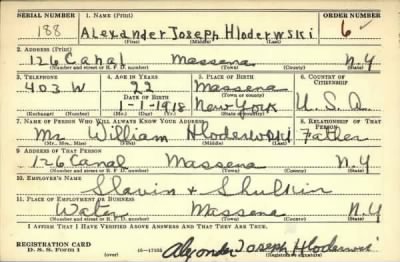 SERIAL NUMBER 1. NAME (Print) ORDER NUMBER
188 Alexander Joseph Hloderwski 6
(First) (Middle) (Last)
2. ADDRESS (Print)
126 Canal Massena N.Y
(Number and street or R. F. D. number) (Town) (County) (State)
3. TELEPHONE 4. AGE IN YEARS 5. PLACE OF BIRTH 6. COUNTRY OF CITIZENSHIP
403 W 22 Massena
DATE OF BIRTH (Town or county)
1-1-1918 New York U.S.A.
(Exchange) (Number) (Mo.) (Day) (Yr.) (State or country)
7. NAME OF PERSON WHO WILL ALWAYS KNOW YOUR ADDRESS 8. RELATIONSHIP OF THAT PERSON
Mr. William Hloderwski Father
(Mr., Mrs., Miss) (First) (Middle) (Last)
9. ADDRESS OF THAT PERSON
126 Canal Massena N.Y
(Number and street or R. F. D. number) (Town) (County) (State)
10. EMPLOYER'S NAME
Slavin + Shulkin
11. PLACE OF EMPLOYMENT OR BUSINESS
Water Massena N.Y
(Number and street or R. F. D. number) (Town) (County) (State)
I AFFIRM THAT I HAVE VERIFIED ABOVE ANSWERS AND THAT THEY ARE TRUE.
REGISTRATION CARD
D. S. S. Form 1 (over) 16-17105 Alexander Joseph Hloderwski
(Registrant's signature)